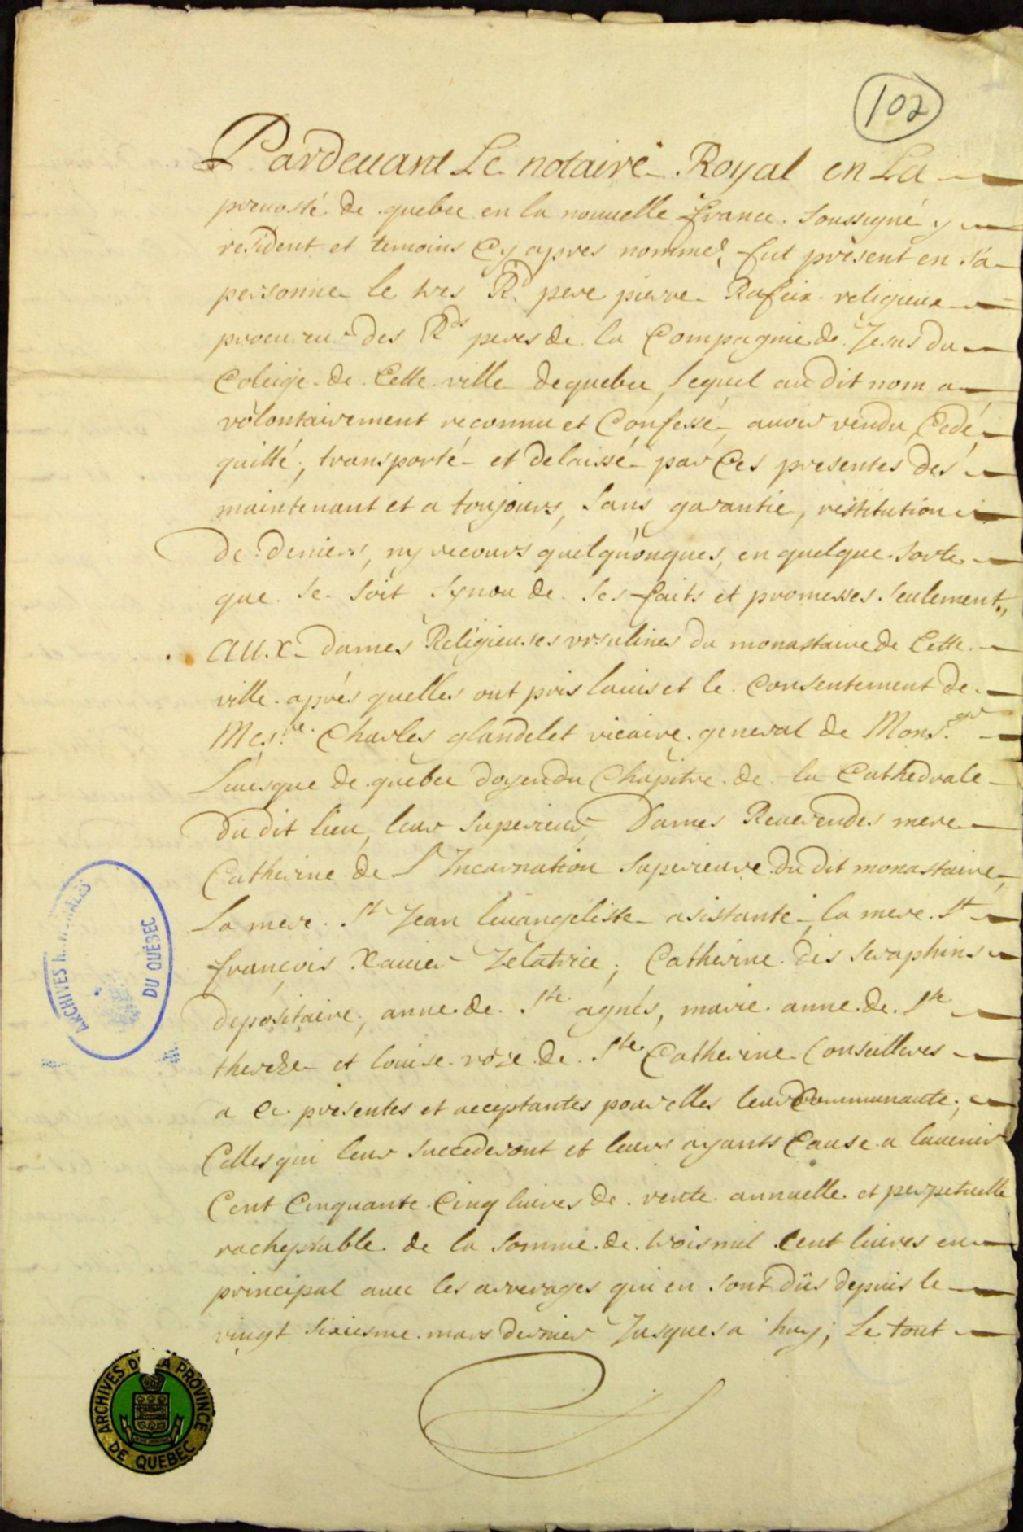 102
Pardeuant Le notaire Royal en La
preuosté de quebec en la nouuelle france soussigné y
resident et temoins Cy apres nommés fut présent en sa
personne le tres Rd pere pierre Rafeix religieux
procureur des Rds peres de la Compagnie de Jesus du
Coleige de Cette ville de quebec, lequel au dit nom a
volontairement reconnu et Confessé, auoir vendu, Cedé,
quitté, transporté et delaissé par Ces presentes dés
maintenant et a toujours, sans garantie, restitution
de deniers, ny recours quelquonques, en quelque sorte
que se soit synon de ses faits et promesses seulement,,
aux dames Religieuses ursulines du monastaire de Cette
ville aprés quelles ont pris lauis et le Consentement de
Mesre. Charles glandelet vicaire general de Monsgr
Leuesque de quebec doyen du Chapitre de la Cathedrale
du dit lieu, leur superieur, Dames Reuerendes mere
Catherine de l'Incarnation superieure du dit monastaire,
La mere St Jean leuangeliste asistante, la mere St
françois Xauier Zelatrice, Catherine des seraphins
dépositaire, anne de Ste agnés, marie anne de Ste
therese et louise roze de Ste Catherine Conseilleres
a Ce presentes et acceptantes pour elles leur Communauté,
Celles qui leur succederont et leurs ayants Cause a lauenir
Cent Cinquante Cinq liures de rente annuelle et perpetuelle
racheptable de la somme de trois mil Cent liures en
principal auec les arrerages qui en sont düs depuis le
vingt sixiesme mars dernier Jusques a huy, Le tout
ARCHIVES NATIONALES
DU QUÉBEC
ARCHIVES DE LA PROVINCE
DE QUEBEC